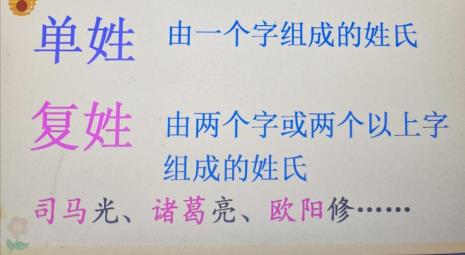 单姓 由一个字组成的姓氏
复姓 由两个字或两个以上字
组成的姓氏
司马光、诸葛亮、欧阳修……